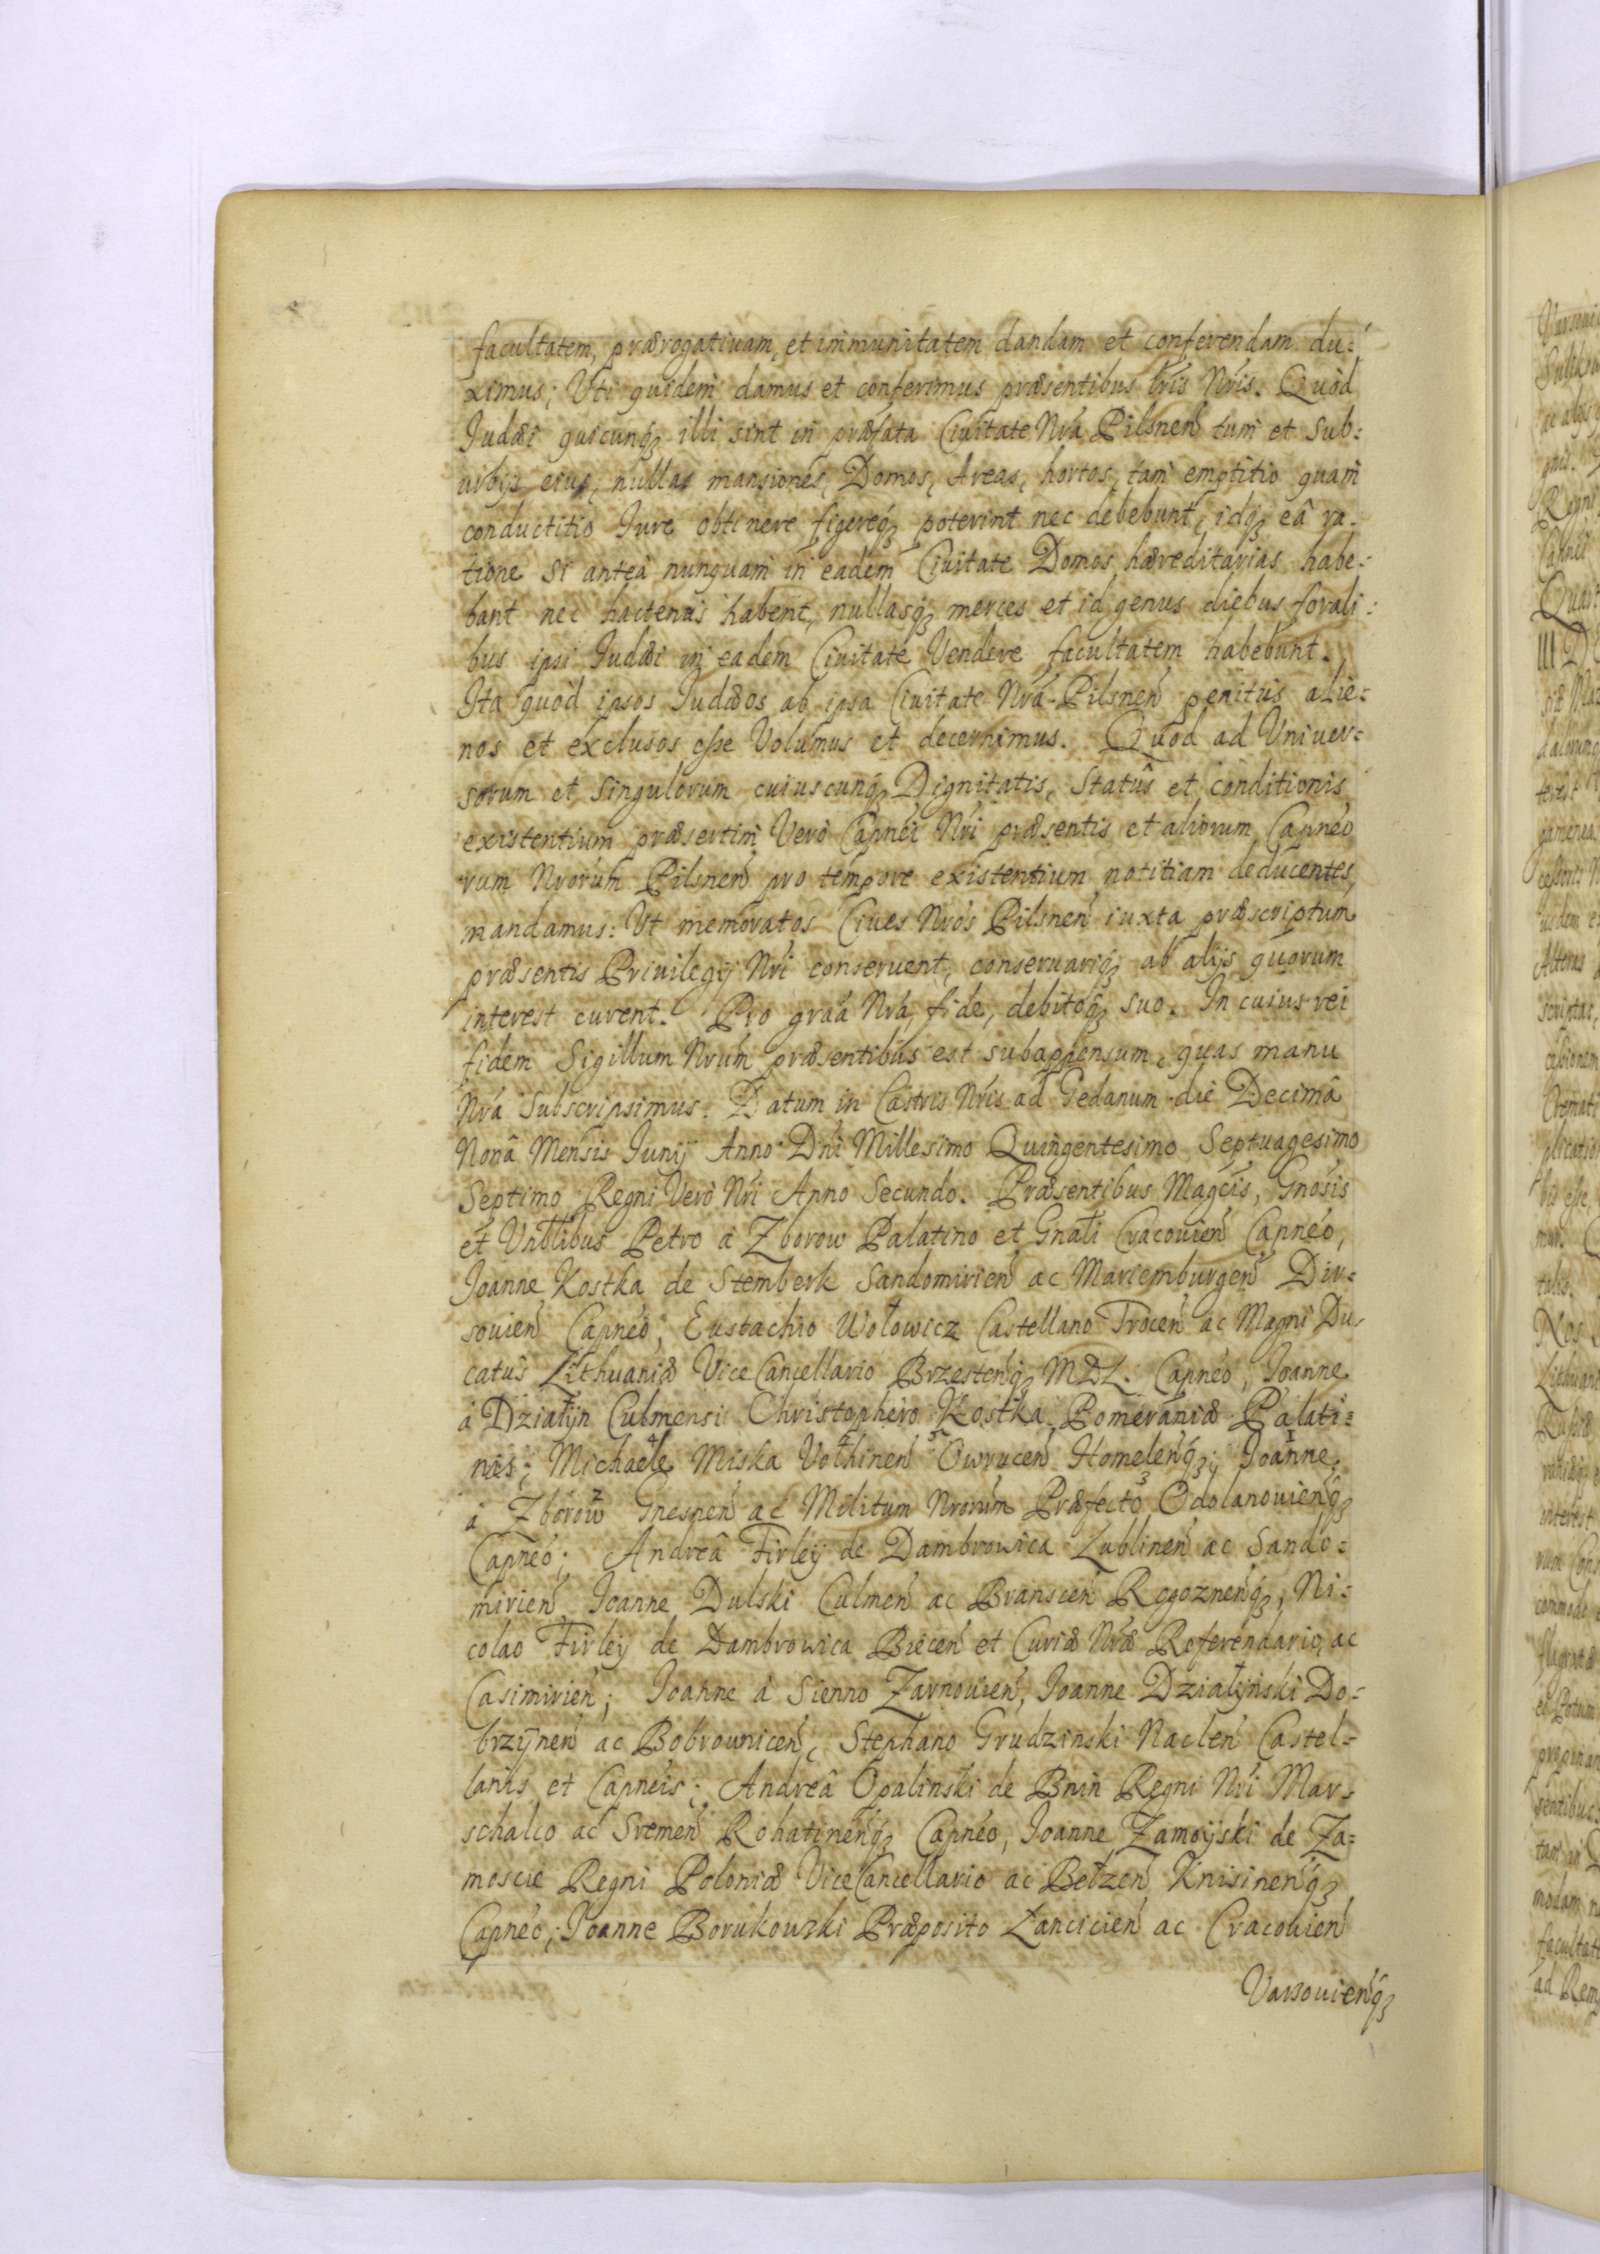 facultatem, prærogatiuam, et immunitatem dandam et conferendam du=
ximus; Uti quidem damus et conferimus præsentibus lris Nris. Quòd
Iudæi quicunq3 illi sint in præfata Ciuitate Nrá Pilsnen tum et Sub=
urbijs eius, nullas mansiones, Domos, Areas, hortos, tam emptitio quam
conductitio Iure obtinere figereq3 poterint nec debebunt, idq3 eâ ra=
tione Si anteà nunquam in eadem Ciuitate Domos hæreditarias habe=
bant nec hactenus habent, nullasq3 merces et id genus diebus forali=
bus ipsi Iudæi in eadem Ciuitate Vendere facultatem habebunt.
Ita quòd ipsos Iudæos ab ipsa Ciuitate Nrá Pilsnen penitus alie=
nos et exclusos esse Volumus et decernimus. Quod ad Uniuer=
sorum et Singulorum cuiuscunq3 Dignitatis, Statûs et conditionis
existentium præsertim Verò Capnei Nri præsentis et aliorum Capneo
rum Nrorum Pilsnen pro tempore existentium notitiam deducentes
mandamus: Ut memoratos Ciues Nros Pilsnen iuxta præscriptum
præsentis Priuilegij Nri conseruent, conseruariq3 ab alijs quorum
interest curent. Pro graá Nrá, fide, debitoq3 suo. In cuius rei
fidem Sigillum Nrum præsentibus est subappensum, quas manu
Nrá Subscripsimus. Datum in Castris Nris ad Gedanum die Decimâ
Nonâ Mensis Iunij Anno Dni Millesimo Quingentesimo Septuagesimo
Septimo Regni Verò Nri Anno Secundo. Præsentibus Magcis, Gnosis
et Unblibus Petro à Zborow Palatino et Gnali Cracouien Capneo,
Ioanne Kostka de Stemberk Sandomirien ac Mariemburgen Dir=
souien Capneo, Eustachio Wołowicz Castellano Trocen ac Magni Du=
catus Lithuaniæ ViceCancellario Brzestenq3 MDL. Capneo, Ioanne
à Działyn Culmensi Christophero Kostka Pomeraniæ Palati=
nis; Michaele 4 Miska Vołhinen 5 Owrucen Homelenq3; Ioanne 1
à Zborow 2 Gnesnen ac Militum Nrorum Præfecto 3 Odolanouienq3
Capneo; Andreâ Firley de Dambrowica Lublinen ac Sando=
mirien Ioanne Dulski Culmen ac Branscen Rogoznenq3, Ni=
colao Firley de Dambrowica Biecen et Curiæ Nræ Referendario, ac
Casimirien; Ioanne à Sienno Zarnouien, Ioanne Działyński Do=
brzÿnen ac Bobrownicen, Stephano Grudzinski Naclen Castel=
lanis et Capneis; Andreâ Opalinski de Bnin Regni Nri Mar=
schalco ac Sremen Rohatinenq3 Capneo, Ioanne Zamoyski de Za=
moscie Regni Poloniæ ViceCancellario ac Bełzen Knisinenq3
Capneo; Ioanne Borukowski Præposito Lancicien ac Cracouien
Varsouienq3